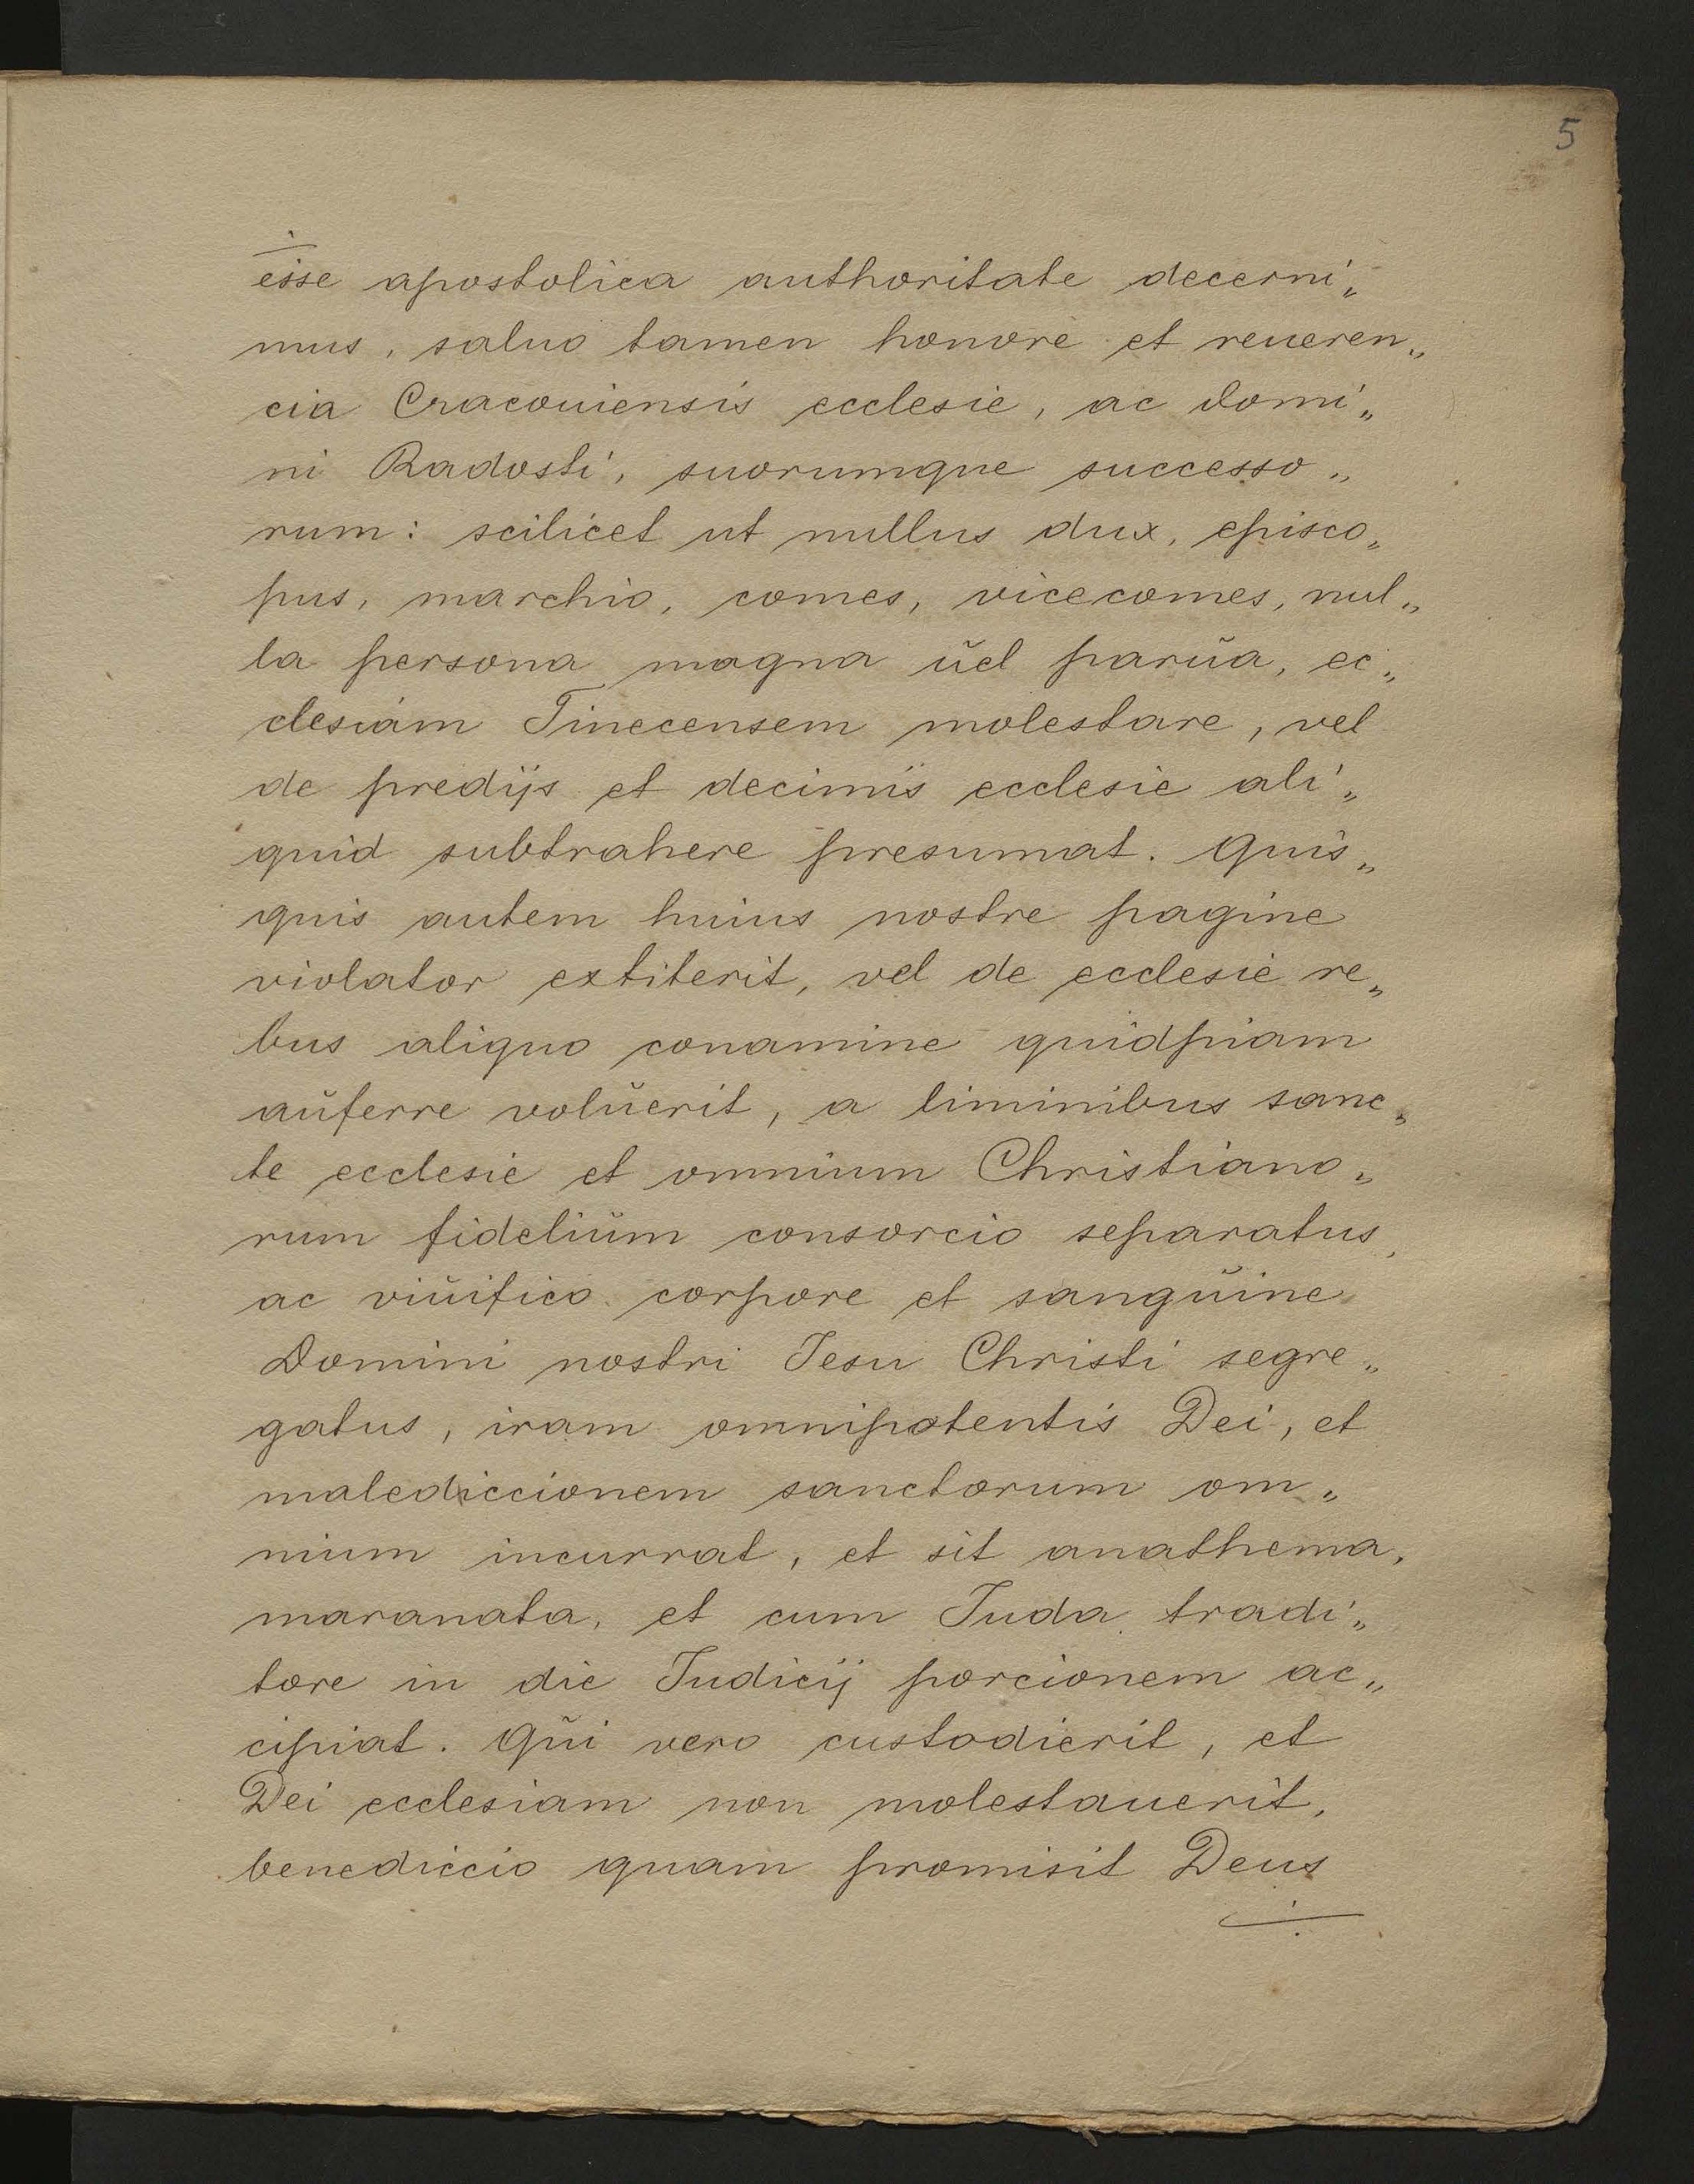 5
esse apostolica authoritate decerni„
mus, saluo tamen honore et reueren„
cia Cracouiensis ecclesie, ac domi„
ni Radosti, suorumque successo„
rum: scilicet ut nullus dux, episco„
pus, marchio, comes, vicecomes, nul„
la persona magna ŭel parŭa, ec„
clesiam Tinecensem molestare, vel
de predijs et decimis ecclesie ali„
quid subtrahere presumat. Quis„
quis autem huius nostre pagine
violator extiterit, vel de ecclesie re„
bus aliquo conamine quidpiam
aŭferre volŭerit, a liminibus sanc„
te ecclesie et omnium Christiano„
rum fideliŭm consorcio separatus,
ac viŭifico corpore et sangŭine
Domini nostri Jesu Christi segre„
gatus, iram omnipotentis Dei, et
malediccionem sanctorum om„
nium incurrat, et sit anathema,
maranata, et cum Juda tradi„
tore in die Judicij porcionem ac„
cipiat. Qŭi vero custodierit, et
Dei ecclesiam non molestauerit,
benediccio quam promisit Deus